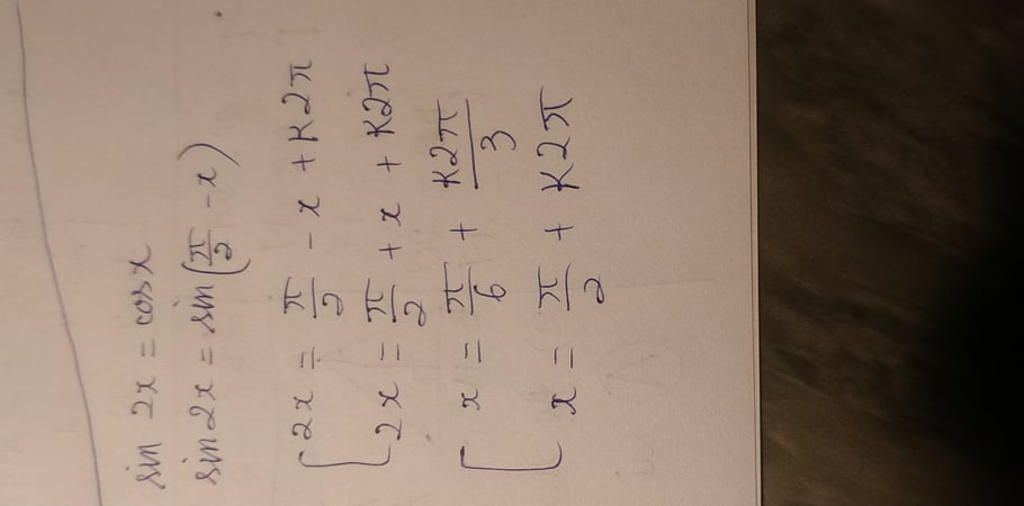 sin 2x = cosx
sin2x = sin(π/2 - x)
[2x = π/2 - x + K2π
[2x = π/2 + x + K2π
[x = π/6 + K2π/3
[x = π/2 + K2π